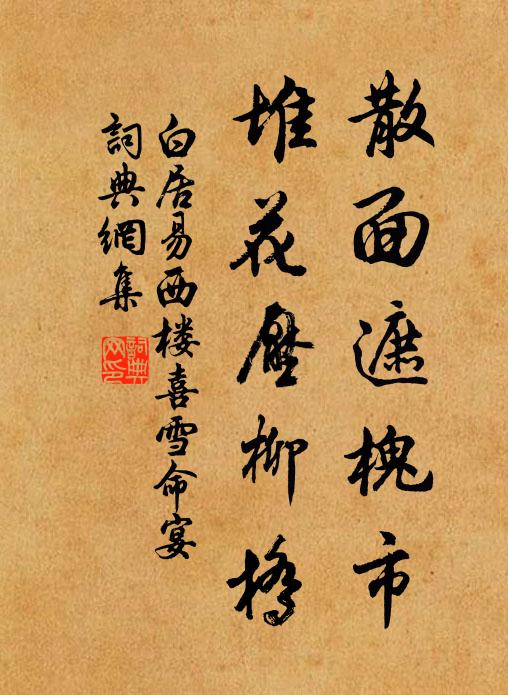 散面遮槐市
堆花壓柳橋
白居易西楼喜雪命宴
詞典網集
詞典網印